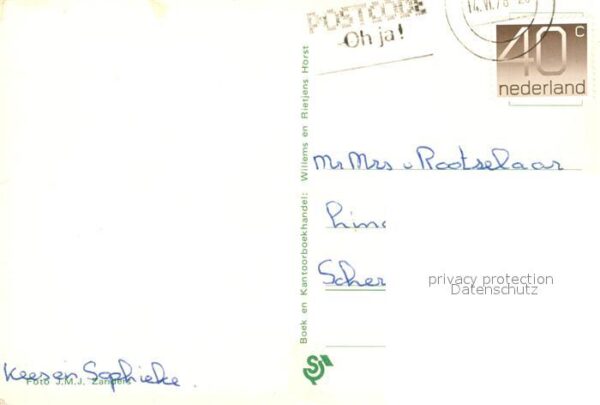 POSTCODE
Oh ja!
14.VI.78
40 c
nederland
Boek en Kantoorboekhandel: Willems en Rietjens Horst
Mr Mrs v Rootselaar
Scher
privacy protection
Datenschutz
Kees en Sophieke.
Foto J.M.J. Zanders